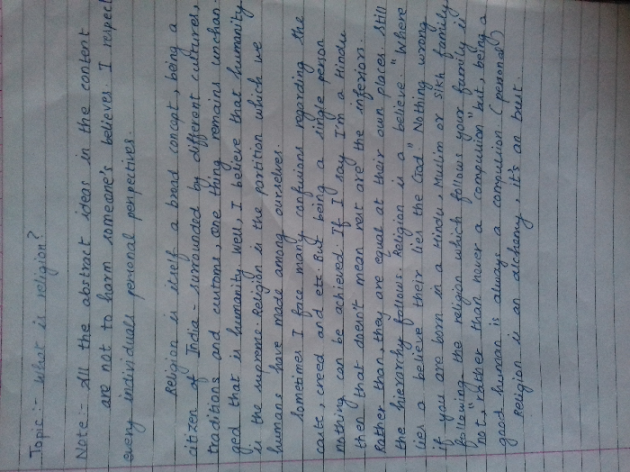 Topic :- What is religion?
Note :- All the abstract ideas in the content
are not to harm someone's believes. I respect
every individuals personal perspectives.
Religion is itself a broad concept, being a
citizen of India - surrounded by different cultures,
traditions and customs, one thing remains unchan-
ged that is humanity well, I believe that humanity
is the supreme. Religion is the partition which we
humans have made among ourselves.
Sometimes I face many confusions regarding the
caste, creed and etc. But being a single person
nothing can be achieved. If I say I'm a Hindu
then that doesn't mean rest are the inferiors.
Rather than, they are equal at their own places. Still
the hierarchy follows. Religion is a believe. "Where
lies a believe their lies the God." Nothing wrong
if you are born in a Hindu, Muslim or Sikh family
following the religion which follows your family is
not, "rather than never a compulsion" but, being a
good human is always a compulsion (personal)
Religion is an alchemy, it's an